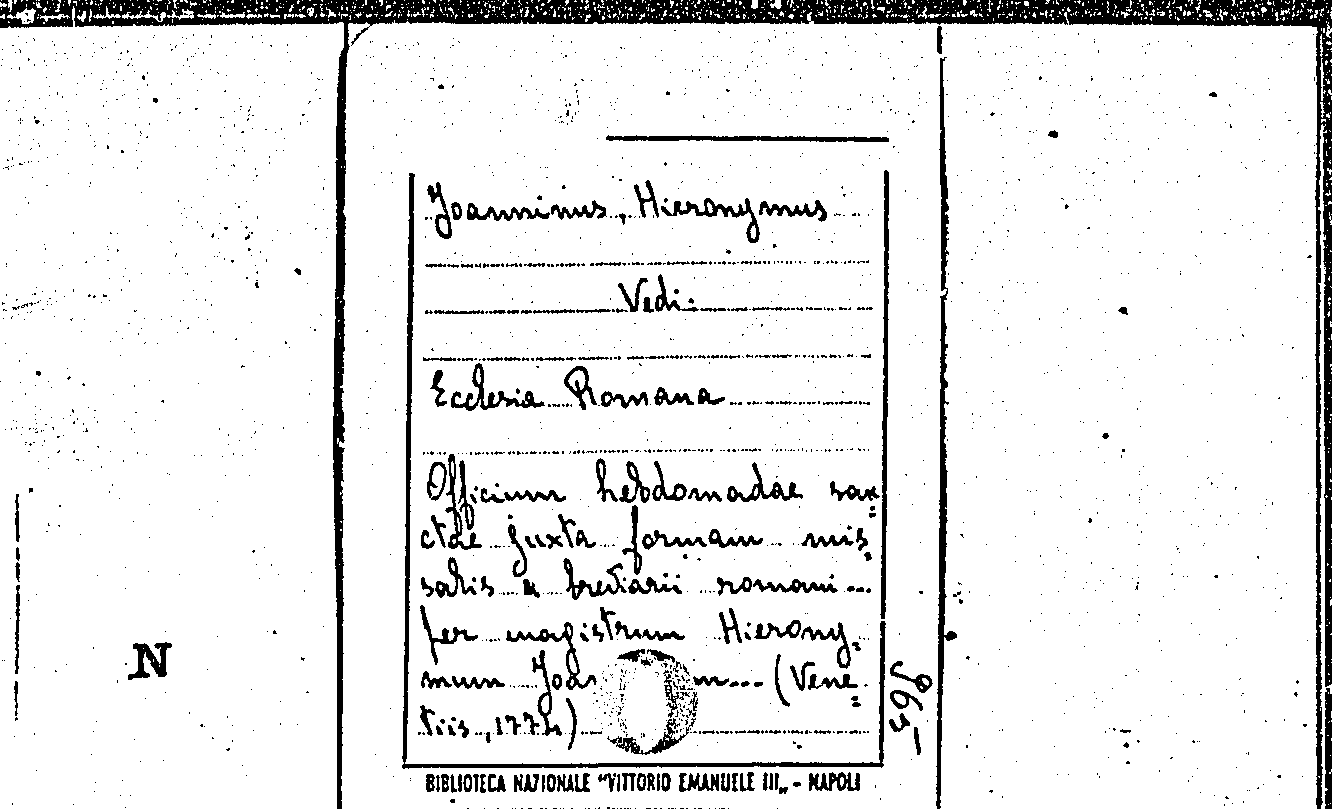 Joanninus, Hieronymus
Vedi:
Ecclesia Romana
Officium hebdomadae san=
ctae juxta formam mis=
salis & breviarii romani...
per magistrum Hierony=
mum Joan m... (Vene=
tiis, 1772)
N
BIBLIOTECA NAZIONALE "VITTORIO EMANUELE III„ - NAPOLI